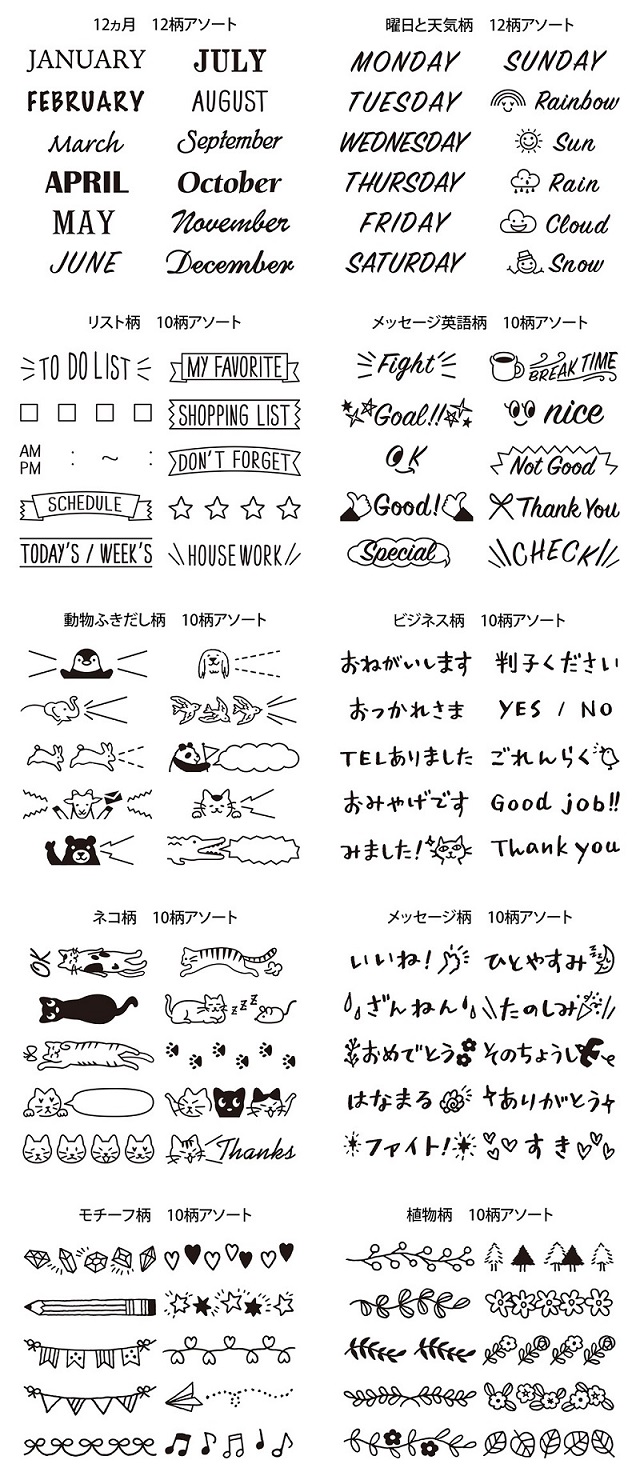 12ヵ月　12柄アソート
JANUARY
JULY
FEBRUARY
AUGUST
March
September
APRIL
October
MAY
November
JUNE
December
曜日と天気柄　12柄アソート
MONDAY
SUNDAY
TUESDAY
Rainbow
WEDNESDAY
Sun
THURSDAY
Rain
FRIDAY
Cloud
SATURDAY
Snow
リスト柄　10柄アソート
TO DO LIST
MY FAVORITE
SHOPPING LIST
AM
PM
: ～ :
DON'T FORGET
SCHEDULE
TODAY'S / WEEK'S
HOUSEWORK
メッセージ英語柄　10柄アソート
Fight
BREAK TIME
Goal!!
nice
OK
Not Good
Good!
Thank You
Special
CHECK
動物ふきだし柄　10柄アソート
ビジネス柄　10柄アソート
おねがいします
判子ください
おつかれさま
YES / NO
TELありました
ごれんらく
おみやげです
Good job!!
みました!
Thank you
ネコ柄　10柄アソート
OK
zzz
Thanks
メッセージ柄　10柄アソート
いいね!
ひとやすみ
ざんねん
たのしみ
おめでとう
そのちょうし
はなまる
ありがとう
ファイト!
すき
モチーフ柄　10柄アソート
植物柄　10柄アソート